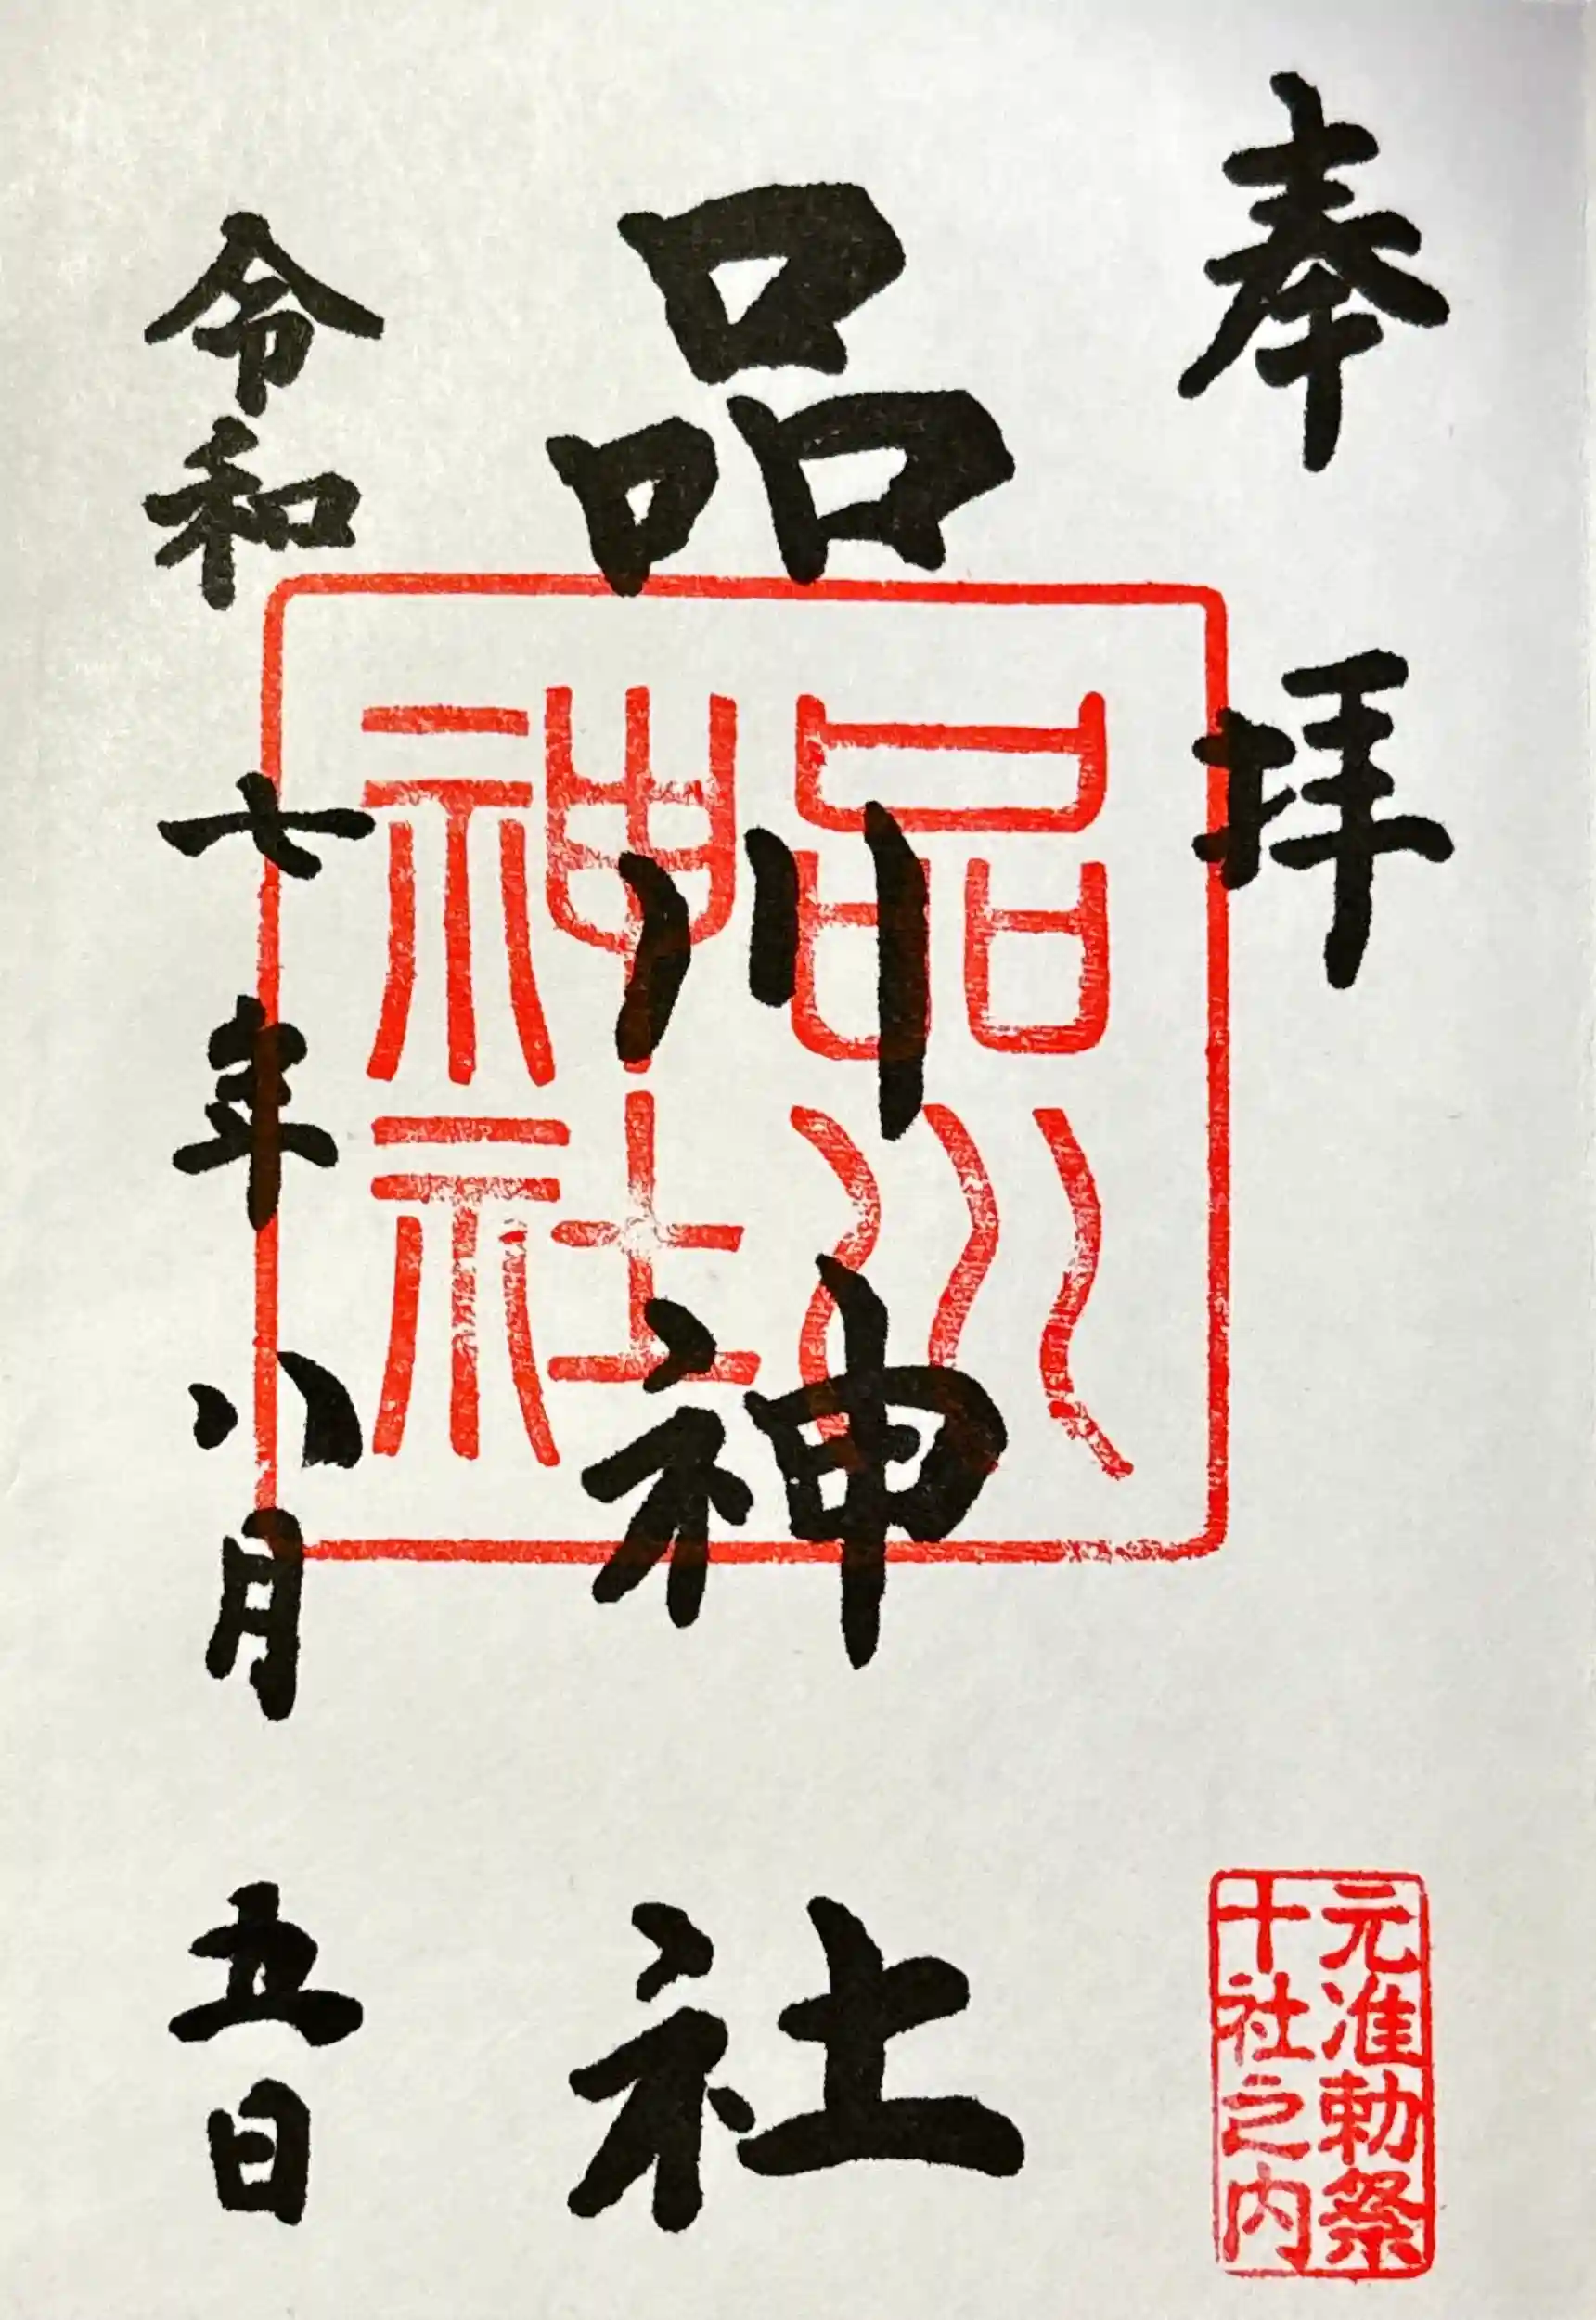 奉拝
元准勅祭
十社之内
品川神社
品川
神社
令和七年八月五日